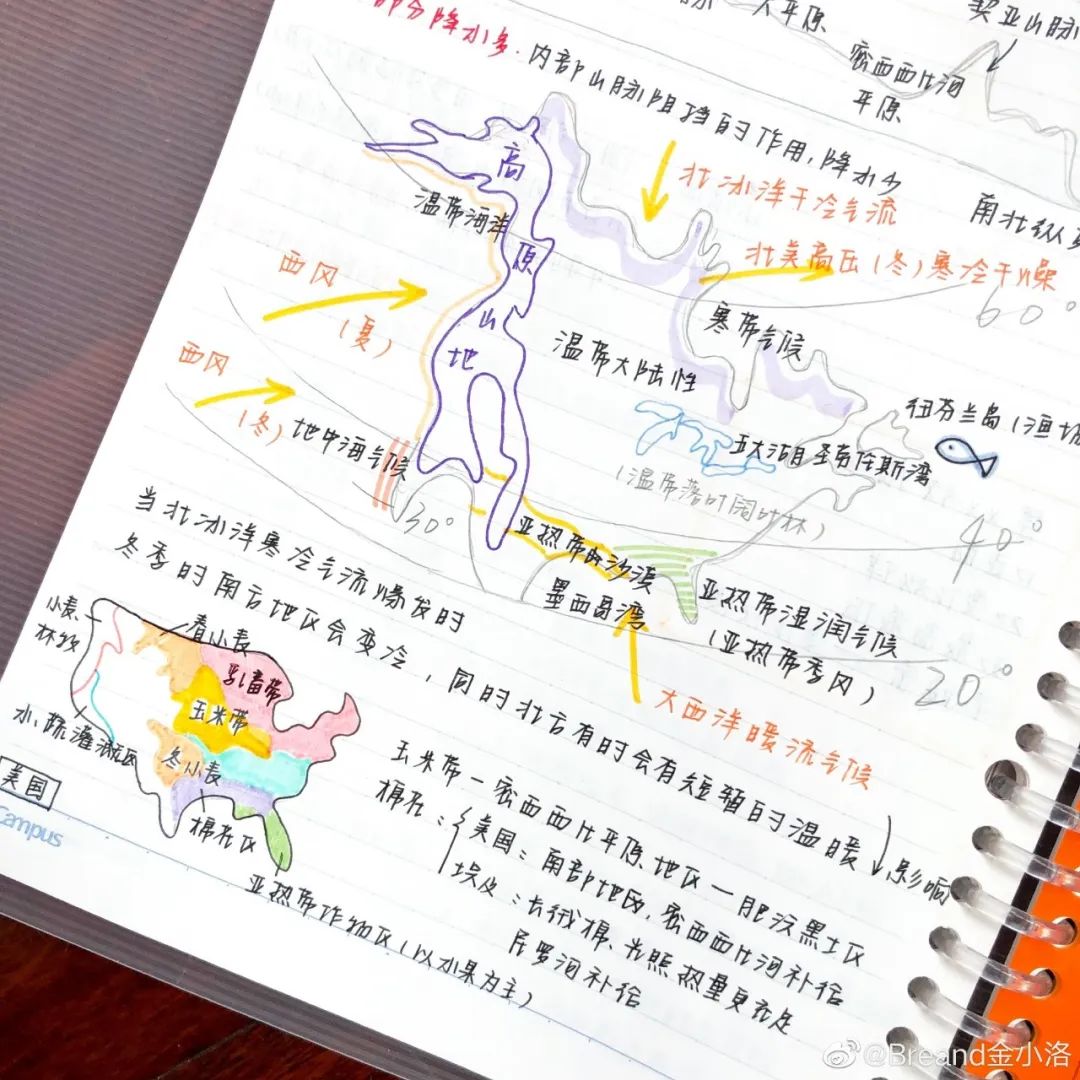 大平原
密西西比河
平原
部分降水多.内部山脉阻挡的作用,降水少
北冰洋干冷气流
南北纵
北美高压(冬)寒冷干燥
60°
高
原
山
地
温带海洋
西风
(夏)
西风
(冬)
地中海气候
寒带气候
温带大陆性
纽芬兰岛(渔场
五大湖
(温带落叶阔叶林)
40°
30°
亚热带的沙漠
墨西哥湾
亚热带湿润气候
(亚热带季风)
20°
大西洋暖流气候
当北冰洋寒冷气流爆发时
冬季时南方地区会变冷,同时北方有时会有短暂的温暖
影响
小麦
林牧
春小麦
乳畜带
玉米带
水.蔬灌溉区
冬小麦
棉花区
亚热带作物区(以水果为主)
美国
Campus
玉米带-密西西比平原地区-肥沃黑土区
棉花:
美国:南部地区,密西西比河补给
埃及:长绒棉、光照热量更充足
尼罗河补给
@Breand金小洛